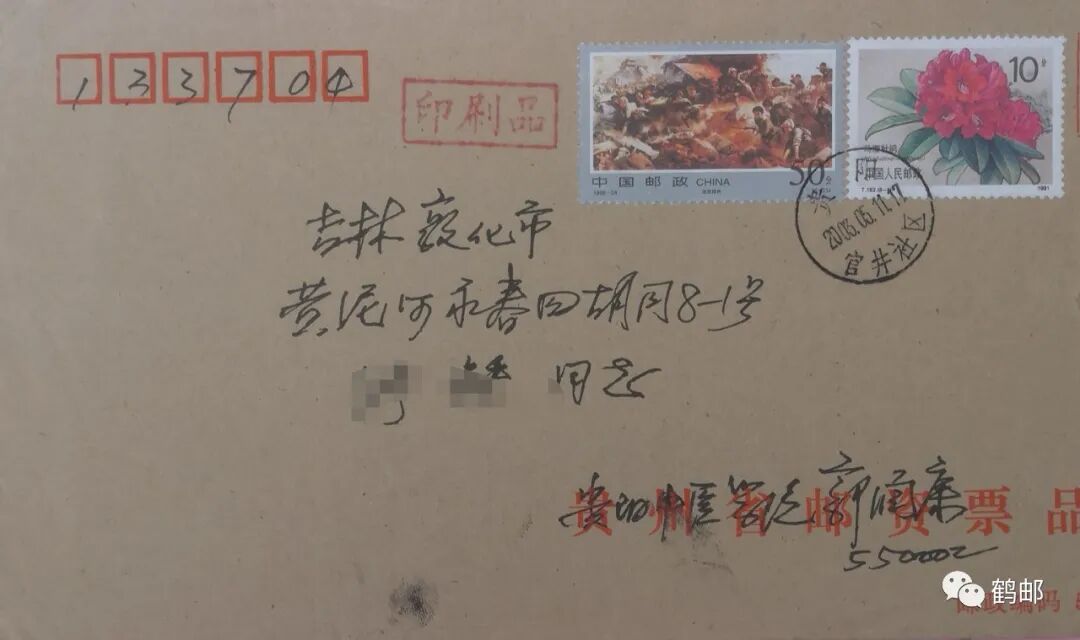 133704
印刷品
中国邮政 CHINA
50分
10分
中国人民邮政
1991
贵阳
2005.05.11.17
官井社区
吉林敦化市
黄泥河永春四胡同8-1号
同志
贵州省邮资票品
贵阳中医学院郭润康
550002
邮政编码
鹤邮